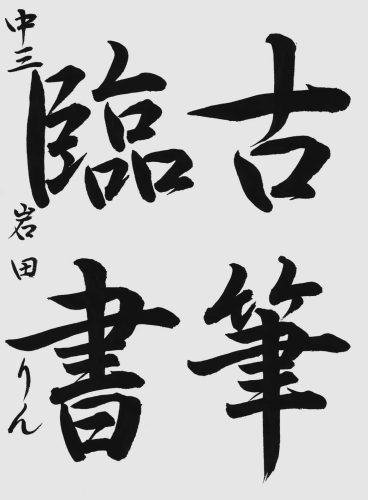 古筆
臨書
中三 岩田 りん